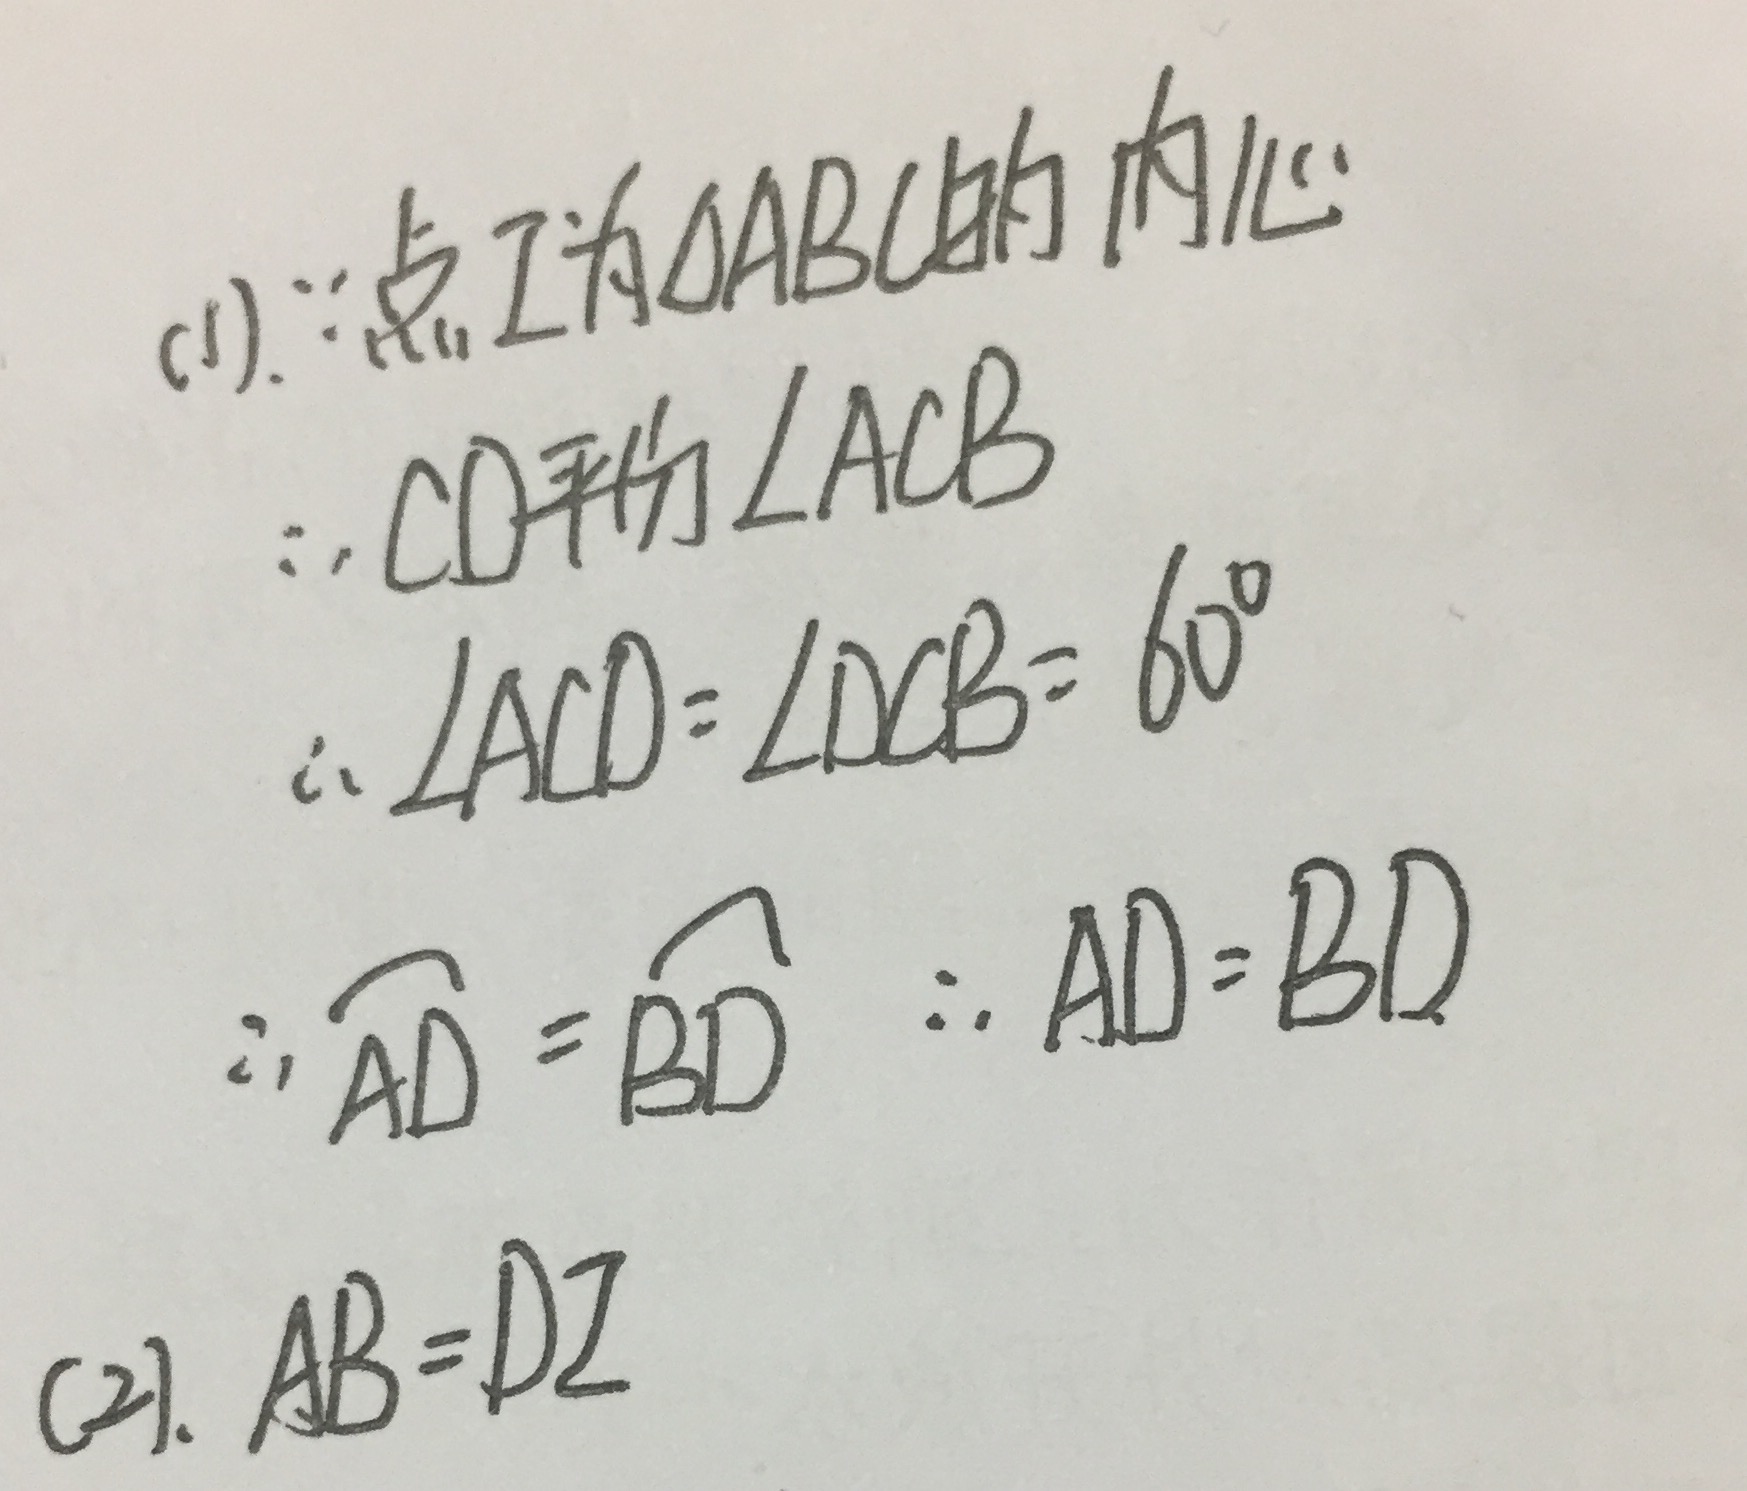 (1).∵点I为△ABC的内心
∴CD平分∠ACB
∴∠ACD=∠DCB=60°
∴A͡D=B͡D ∴AD=BD
(2).AB=DI